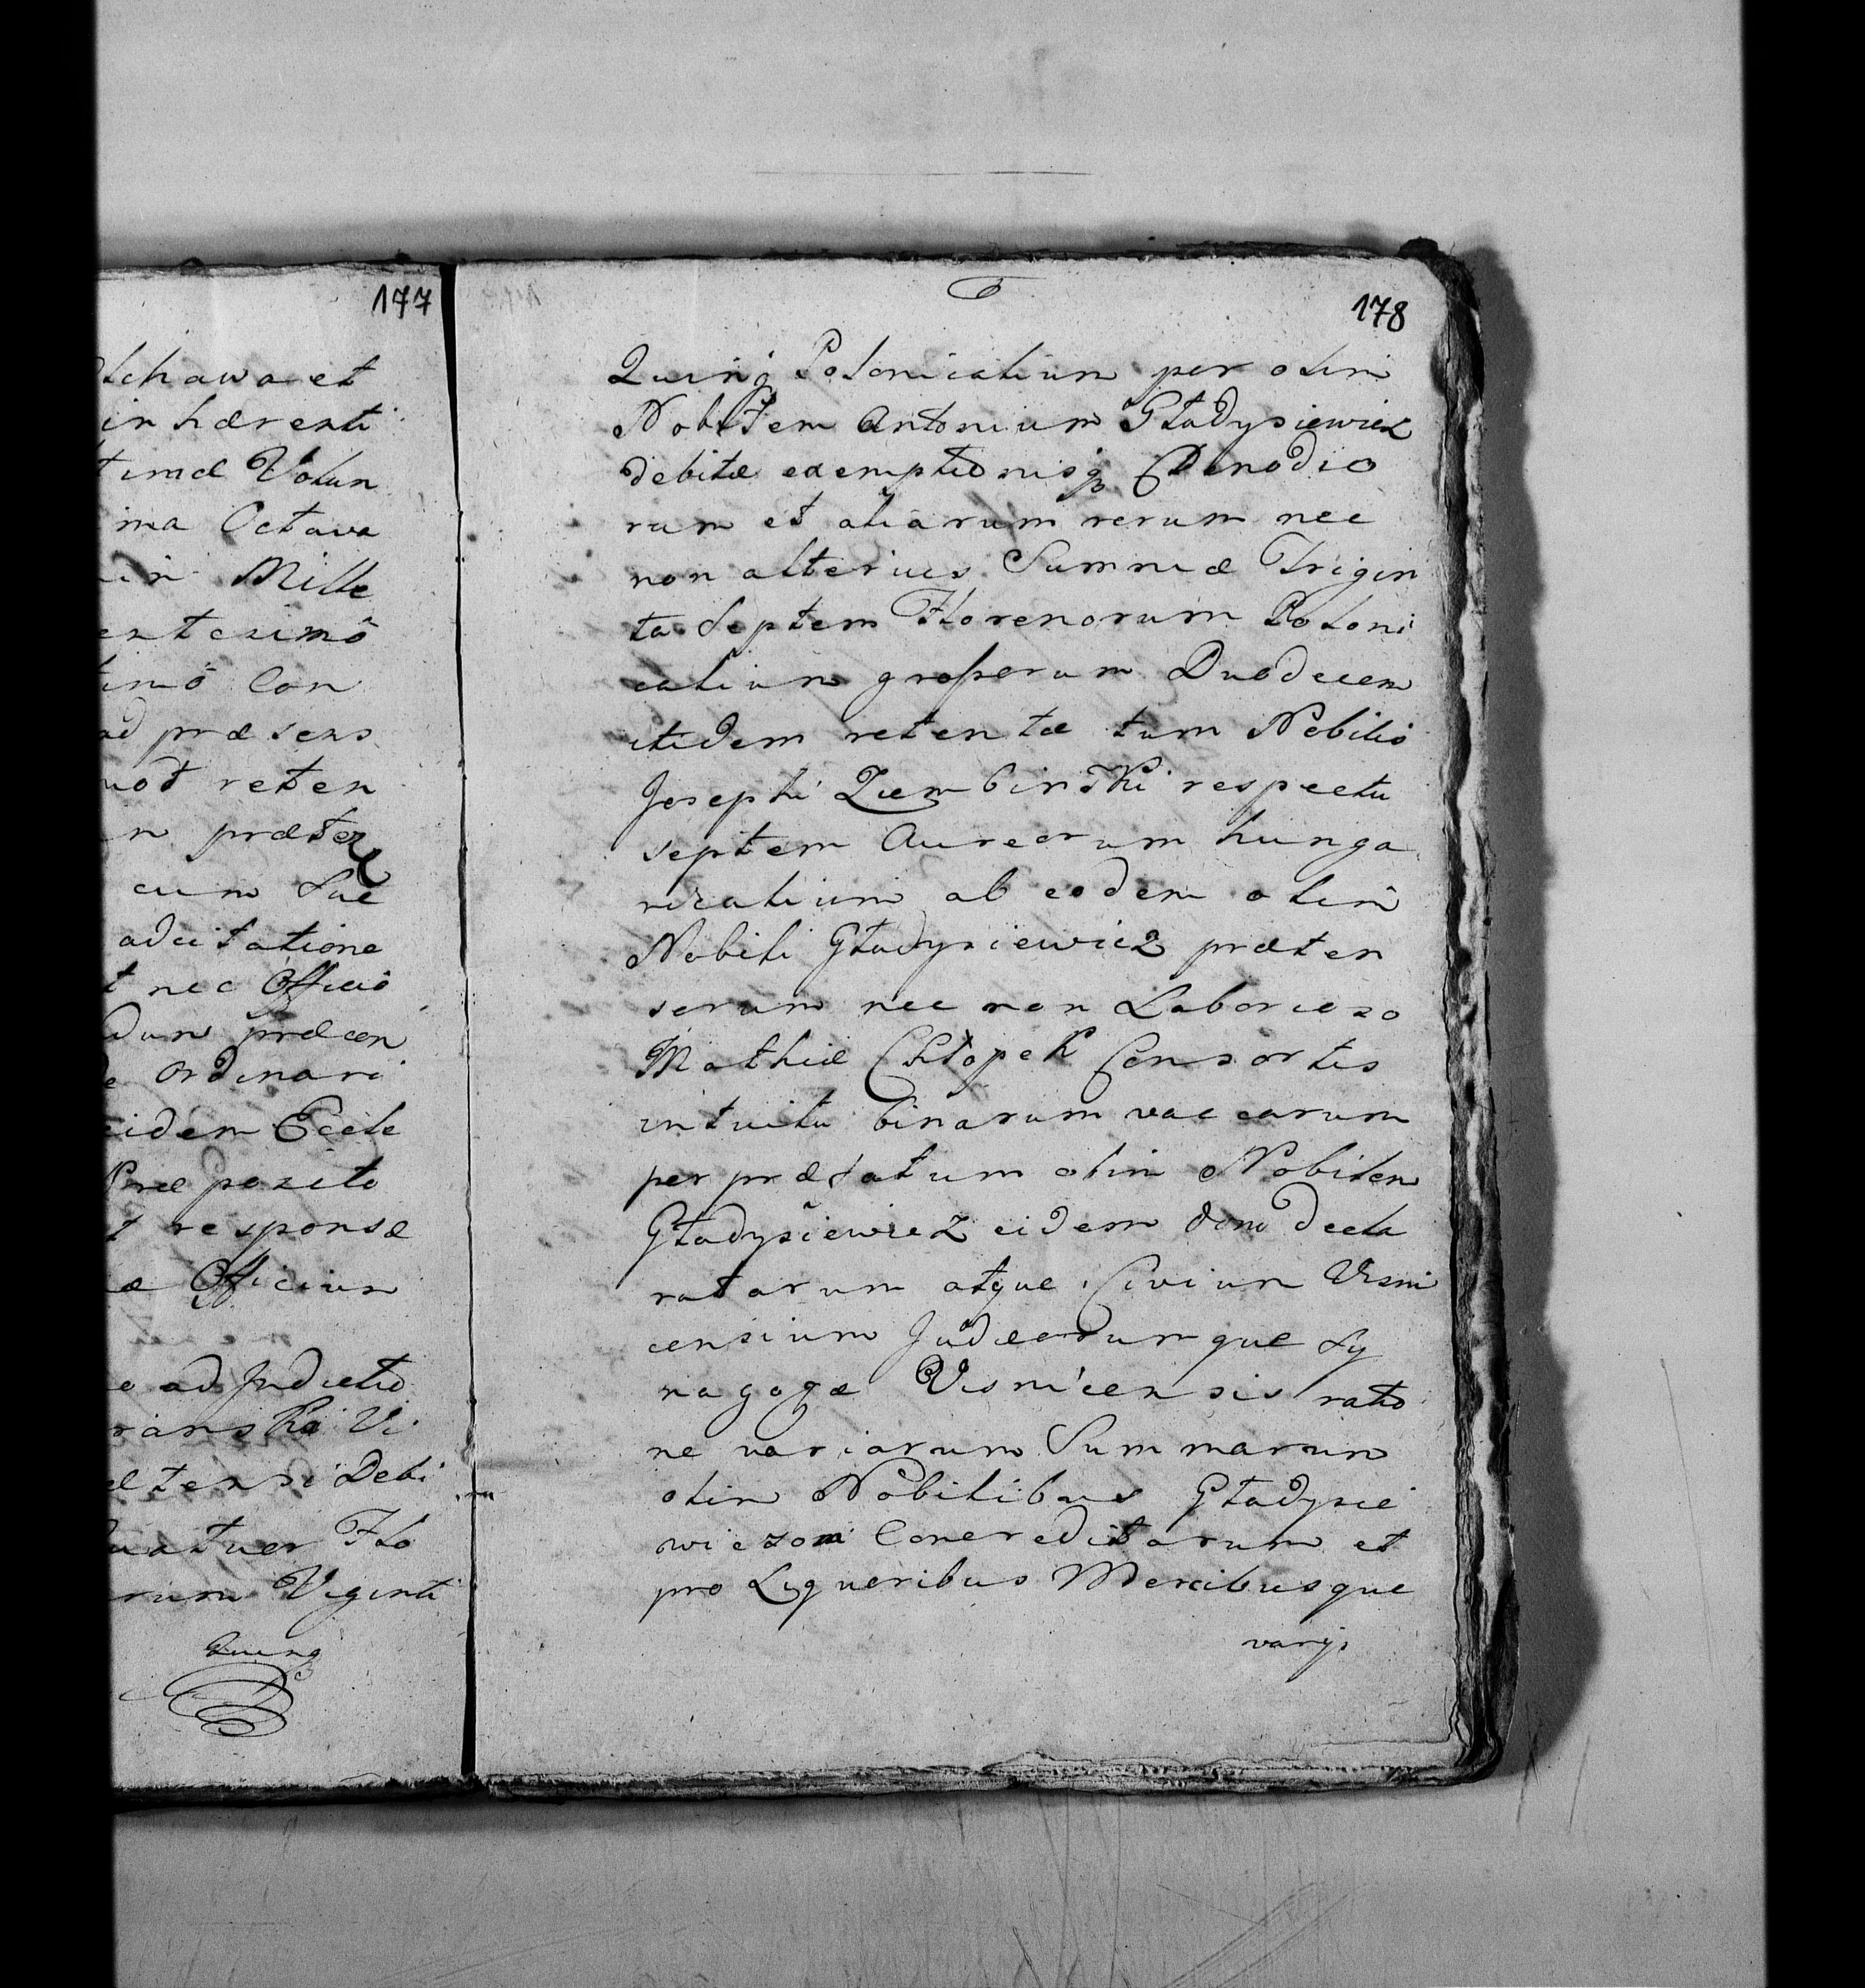 177
tchawa et
inhærenti
timæ Volun
ma Octava
in Mille
entesimô
timô Con
ad præsens
uod reten
n præter
cum Suê
adcitatione
t nec Officiô
dum præcon
e Ordinari
eidem Eccle
Præpozito
t responsæ
æ Officium
o ad Judicio
ranska Vi
ætensi Debi
uatuor Flo
rum Viginti
Quinq
178
Quinq Polonicalium per olim
Nobilem Antonium Gładysiewicz
debitæ exemptionisq
rum et aliarum rerum nec
non alterius Summæ Trigin
ta Septem Florenorum Poloni
calium grossorum Duodecem
itidem retentæ tum Nobilis
Josephi Ziembinski respectu
septem Aureorum hunga
ricalium ab eodem olim
Nobili Gładysiewicz præten
sorum nec non Laboriozo
Mathiæ Chłopek Consortis
intuitu binarum vaccarum
per præfatum olim Nobilem
Gładysiewicz eidem dono decla
ratarum atque Civium Visni
censium Judæorumque Sy
nagogæ Visnicensis ratio
ne variarum Summarum
olim Nobilibus Gładysie
wiczom Concreditarum et
pro Liqueribus Mercibusque
varijs